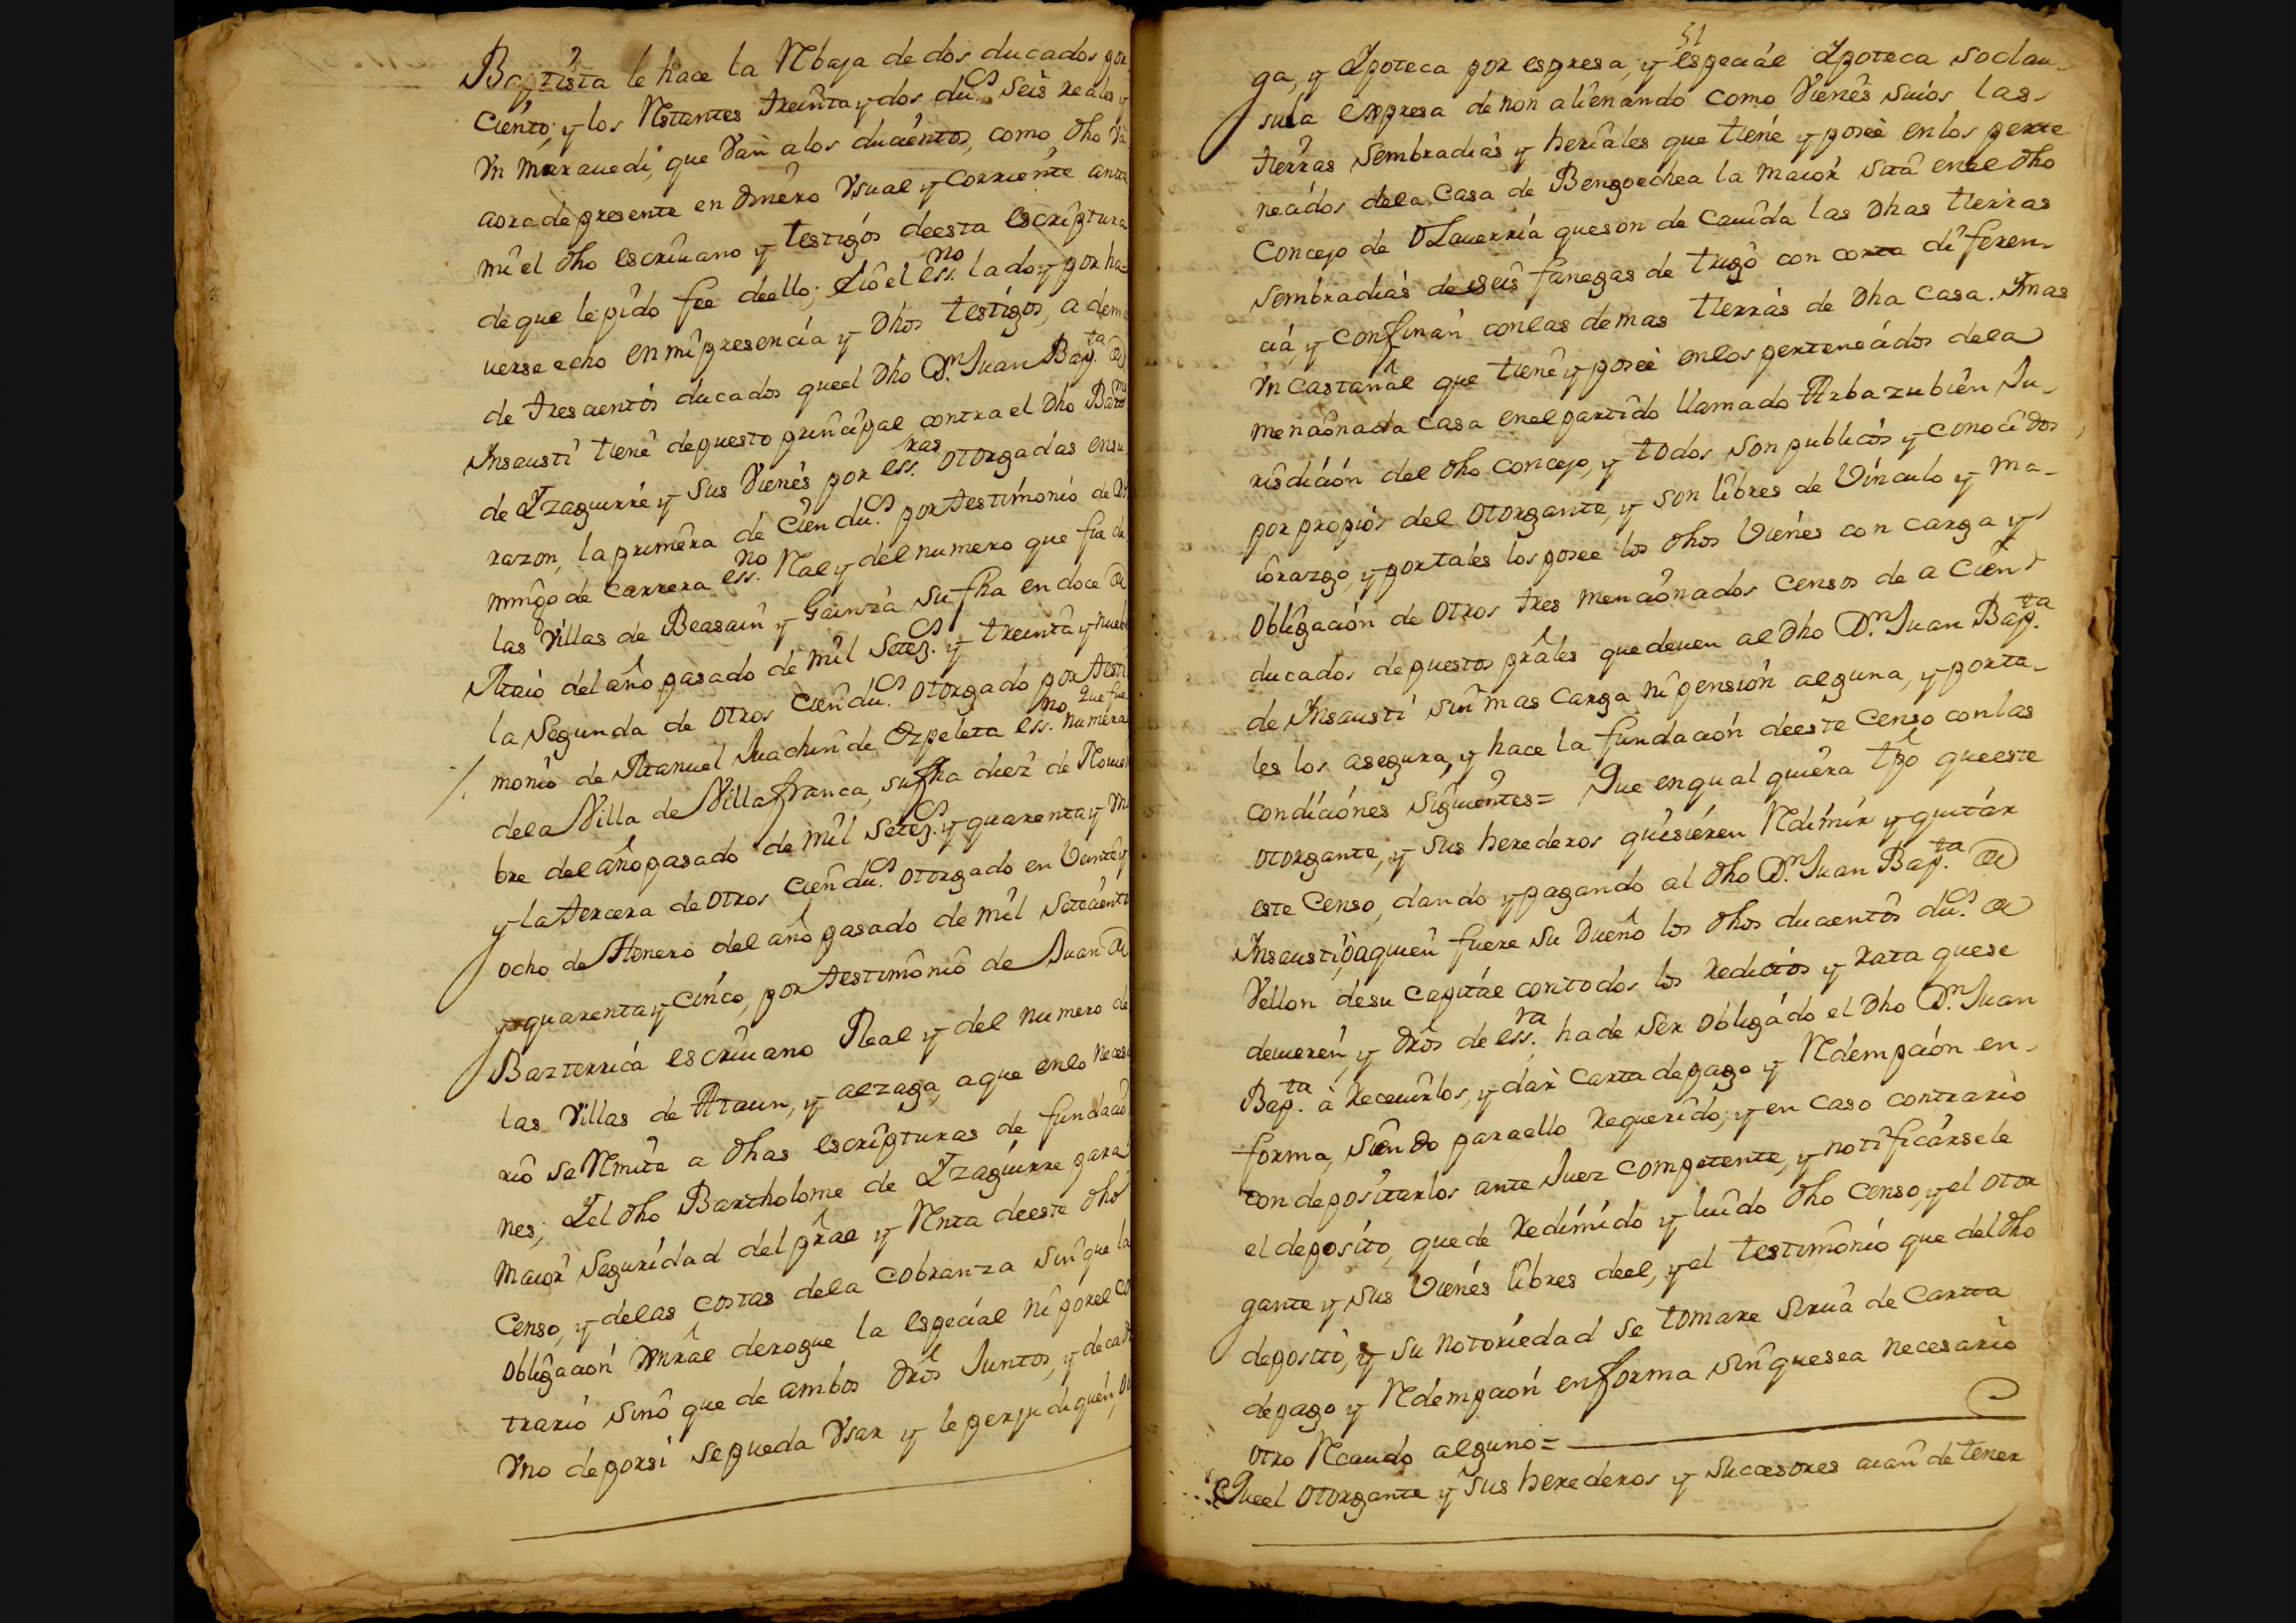 Baptista le hace la Rbaja de dos ducados por
Ciento, y los Rstantes treinta y dos du.s seis reales y
Un maravedi, que Van a los ducientos, como dho Va
aora de presente en dinero Usual y corriente ante
mi el dho escrivano y testigos de esta escriptura
de que le pido fee de ello; Lio el ess.no la doy por ha=
verse echo en mi presencia y dhos testigos, a dema
de trescientos ducados que el dho D.n Juan Bap.ta de
Insausti tiene de puesto principal contra el dho Bar.me
de Yzaguirre y sus Vienes por ess.ras otorgadas en su
razon, la primera de Cien du.s por testimonio de Do
mingo de Carrera ess.no Ral y del numero que fue de
las Villas de Beasain y Gainza su fha en doce de
Maio del año pasado de mil Setez.s y treinta y nueve
la Segunda de otros Cien du.s otorgado por testi
monio de Manuel Juachin de Ozpeleta ess.no que fue numera
de la Villa de Villafranca, su fha diez de Noviem
bre del año pasado de mil setez.s y quarenta y
y la tercera de otros Cien du.s otorgado en Veinte y
ocho de Henero del año pasado de mil Setecientos
y quarenta y cinco, por testimonio de Juan de
Bazterrica escrivano Real y del numero de
las Villas de Ataun, y alzaga, a que en lo neces
rio se Rmite a dhas escripturas de fundacio
nes; Y el dho Bartholome de Yzaguirre para
maior Seguridad del prâl y Rnta de este dho
Censo, y de las costas de la cobranza sin que la
obligacion Gnral derogue la especial ni por el co
trario sino que de ambos dros Juntos, y de cada
Uno de por si se pueda Usar y le perjudiquen, o
51
ga, y Ypoteca por espresa, y especial Ypoteca so clau-
sula expresa de non alienando como Vienes suios las
tierras sembradias y heriales que tiene y posee en los perte
necidos de la Casa de Bengoechea la maior sita en el dho
Concejo de Olaverria que son de cavida las dhas tierras
sembradias de seis fanegas de trigo con corta diferen-
cia, y confinan con las demas tierras de dha casa. Ymas
Un castañal que tiene y posee en los pertenecidos de la
mencionada casa en el partido llamado Arbazubien Ju-
risdicion del dho concejo, y todos son publicos y conocidos
por propios del otorgante, y son libres de Vinculo y ma-
iorazgo, y por tales los posee los dhos Vienes con carga y
obligacion de otros tres mencionados censos de a Cien
ducados de puestos prâles que deven al dho D.n Juan Bap.ta
de Insausti sin mas carga ni pension alguna, y por ta-
les los asegura, y hace la fundacion de este Censo con las
condiciones siguientes= Que en qual quiera tpo que este
otorgante, y sus herederos quisieren Rdimir y quitar
este Censo, dando y pagando al dho D.n Juan Bap.ta de
Insausti, o a quien fuere su dueño los dhos ducientos du.s de
Vellon de su capital con todos los redictos y rata que se
devieren, y dros de ess.ra ha de ser obligado el dho D.n Juan
Bap.ta a recevirlos, y dar carta de pago y Rdempcion en
forma, siendo para ello requerido, y en caso contrario
con depositarlos ante Juez competente, y notificarsele
el deposito, quede redimido y luido dho censo, y el otor
gante y sus Vienes libres de el, y el testimonio que del dho
deposito, y su notoriedad se tomare sirva de Carta
de pago y Rdempcion en forma sin que sea necesario
otro Rcaudo alguno=
Que el otorgante y sus herederos y sucesores aian de tener